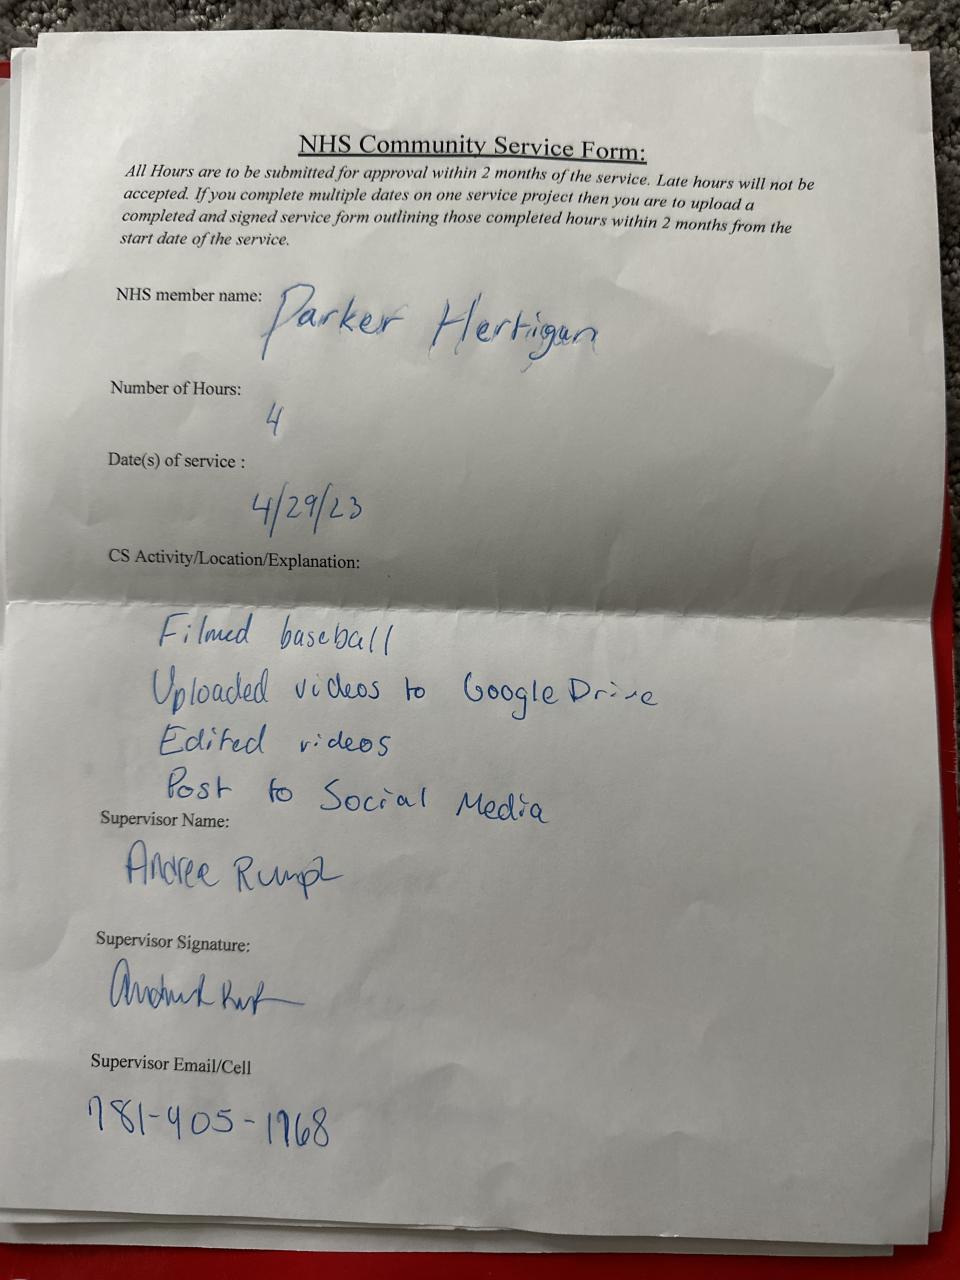 NHS Community Service Form:
All Hours are to be submitted for approval within 2 months of the service. Late hours will not be
accepted. If you complete multiple dates on one service project then you are to upload a
completed and signed service form outlining those completed hours within 2 months from the
start date of the service.
NHS member name: Parker Hertigan
Number of Hours:
4
Date(s) of service :
4/29/23
CS Activity/Location/Explanation:
Filmed baseball
Uploaded videos to Google Drive
Edited videos
Post to Social Media
Supervisor Name:
Andree Rumpl
Supervisor Signature:
Supervisor Email/Cell
781-405-1968